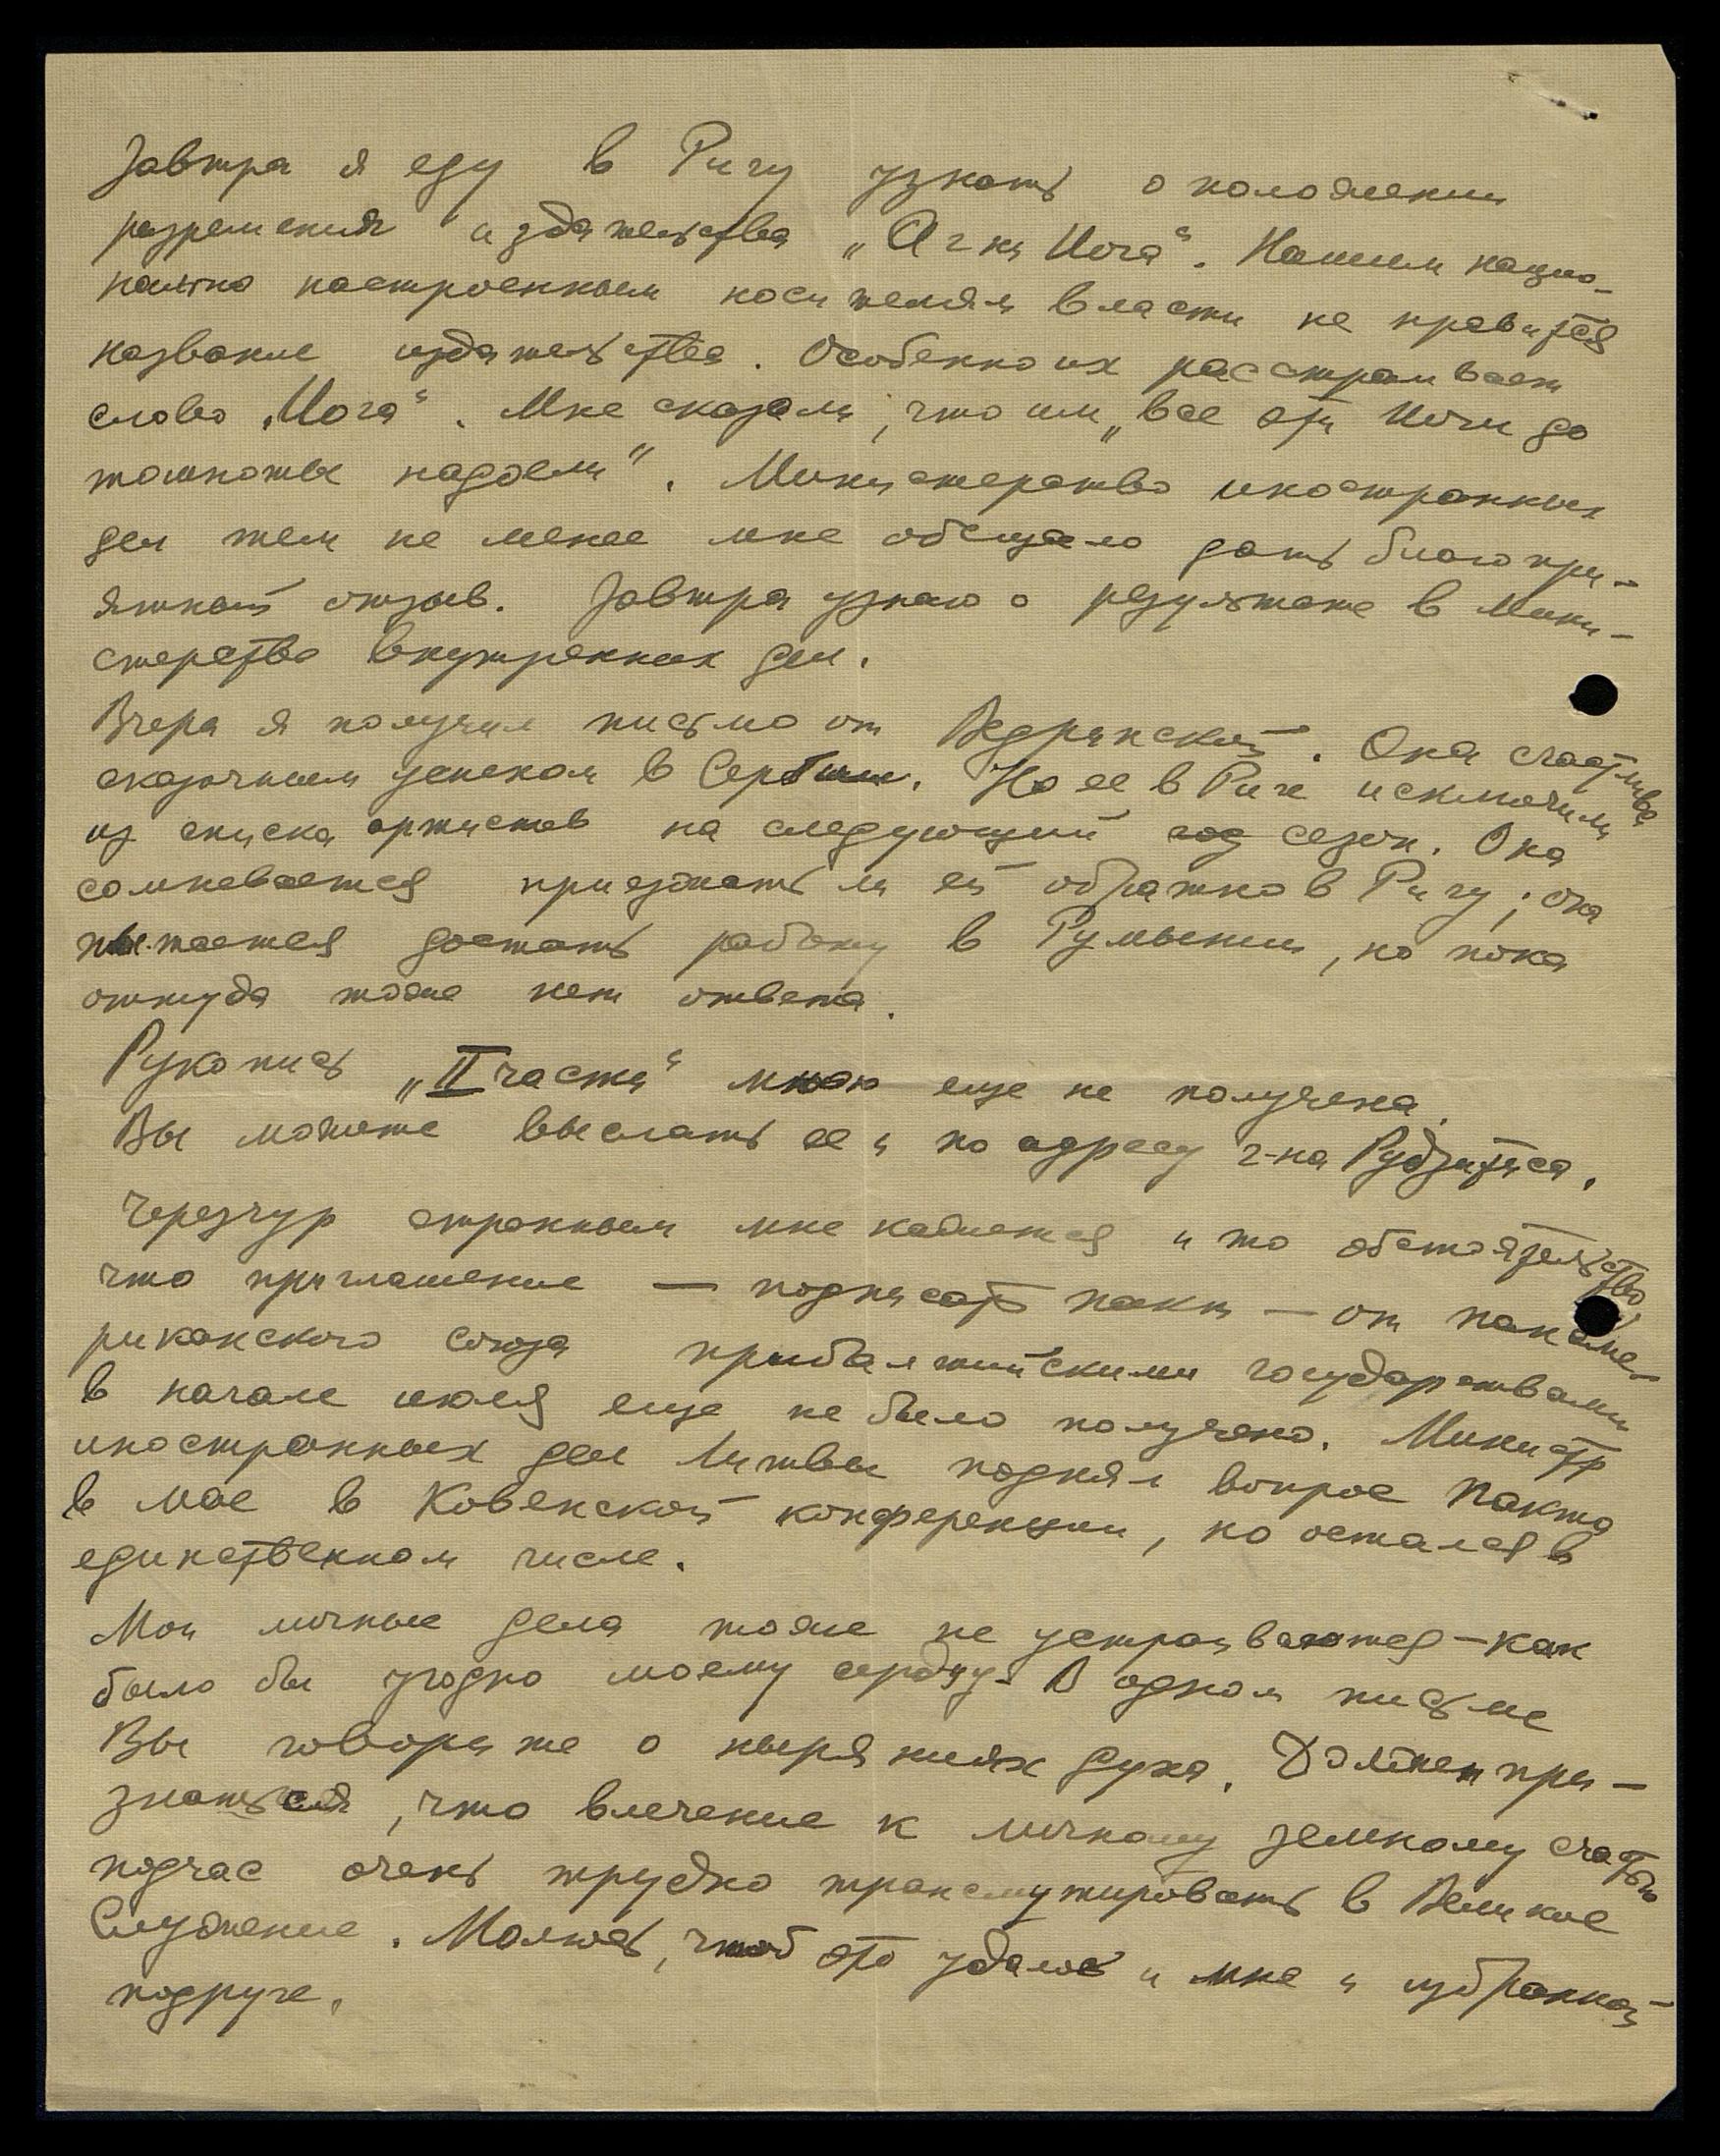 Завтра я еду в Ригу узнать о положении
разрешения издательства „Агни Йога“. Нашим нацио-
нально настроенным носителям власти не нравится
название издательства. Особенно их расстраивает
слово „Йога“. Мне сказали, что им „все эти Йоги до
тошноты надоели“. Министерство иностранных
дел тем не менее мне обещало дать благопри-
ятный отзыв. Завтра узнаю о результате в Мини-
стерстве внутренних дел.
Вчера я получил письмо от Ведринской. Она счастлива
сказочным успехом в Сербии. Но ее в Риге исключили
из списка артистов на следующий год сезон. Она
сомневается приезжать ли ей обратно в Ригу; она
пытается достать работу в Румынии, но пока
оттуда тоже нет ответа.
Рукопись „II части“ мною еще не получена.
Вы можете выслать ее и по адресу г-на Рудзитиса.
Черезчур странным мне кажется и то обстоятельство,
что приглашение — подписать пакт — от панаме-
риканского союза прибалтийскими государствами
в начале июля еще не было получено. Министр
иностранных дел Литвы поднял вопрос Пакта
в мае в Ковенской конференции, но остался в
единственном числе.
Мои личные дела тоже не устраиваются — как
было бы угодно моему сердцу. В одном письме
Вы говорите о ныряниях духа. Должен при-
знаться, что влечение к личному земному счастью
подчас очень трудно трансмутировать в Великое
Служение. Молюсь, чтоб это удалось и мне и избранной
подруге.